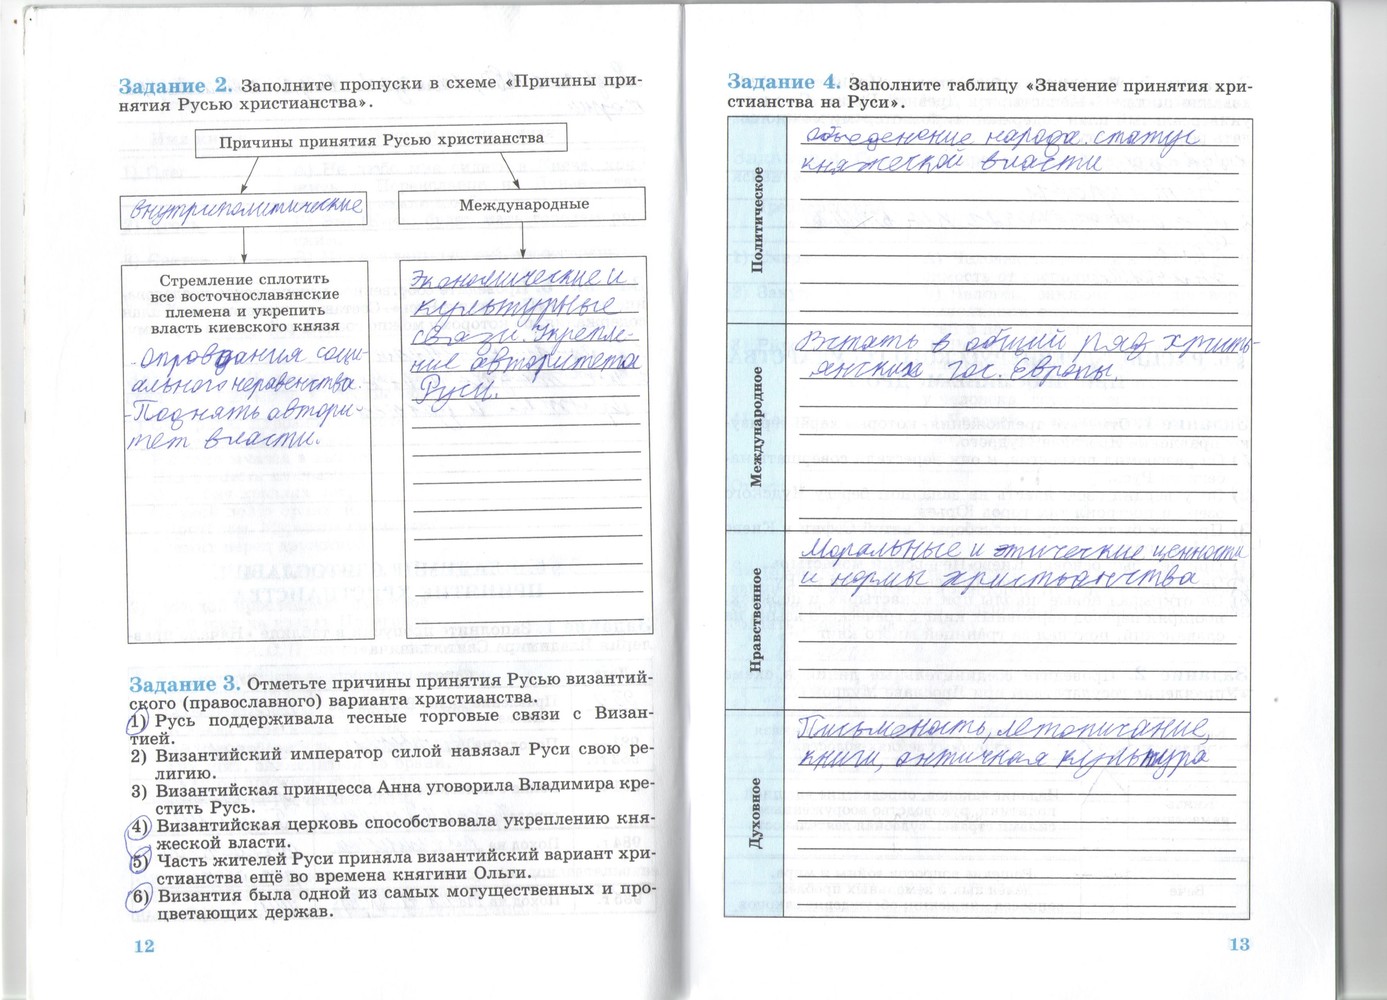 Задание 2. Заполните пропуски в схеме «Причины при-
нятия Русью христианства».
Причины принятия Русью христианства
внутриполитические
Международные
Стремление сплотить
все восточнославянские
племена и укрепить
власть киевского князя
- оправдания соци-
ального неравенства.
- Поднять автори-
тет власти.
Экономические и
культурные
связи. Укрепле-
ние авторитета
Руси.
Задание 3. Отметьте причины принятия Русью византий-
ского (православного) варианта христианства.
1) Русь поддерживала тесные торговые связи с Визан-
тией.
2) Византийский император силой навязал Руси свою ре-
лигию.
3) Византийская принцесса Анна уговорила Владимира кре-
стить Русь.
4) Византийская церковь способствовала укреплению кня-
жеской власти.
5) Часть жителей Руси приняла византийский вариант хри-
стианства ещё во времена княгини Ольги.
6) Византия была одной из самых могущественных и про-
цветающих держав.
12
Задание 4. Заполните таблицу «Значение принятия хри-
стианства на Руси».
Политическое
объеденение народа. статус
княжеской власти
Международное
Встать в общий ряд христь-
янских гос. Европы
Нравственное
Моральные и этические ценности
и нормы христьанства
Духовное
Письменость, летописание,
книги, античная культура
13